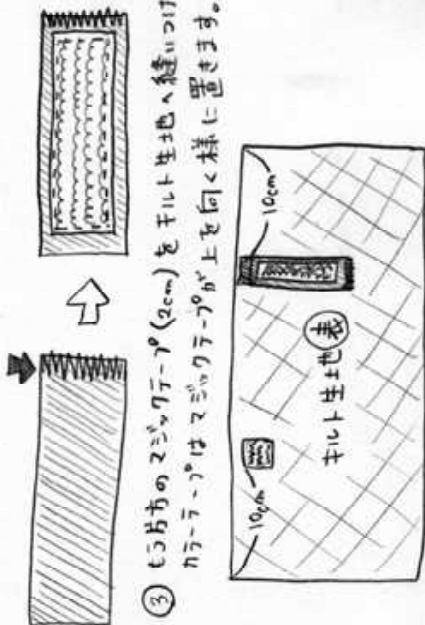 ③ もう片方のマジックテープ(2cm)をキルト生地へ縫いつけ
カラーテープはマジックテープが上を向く様に置きます。
10cm
10cm
キルト生地 表